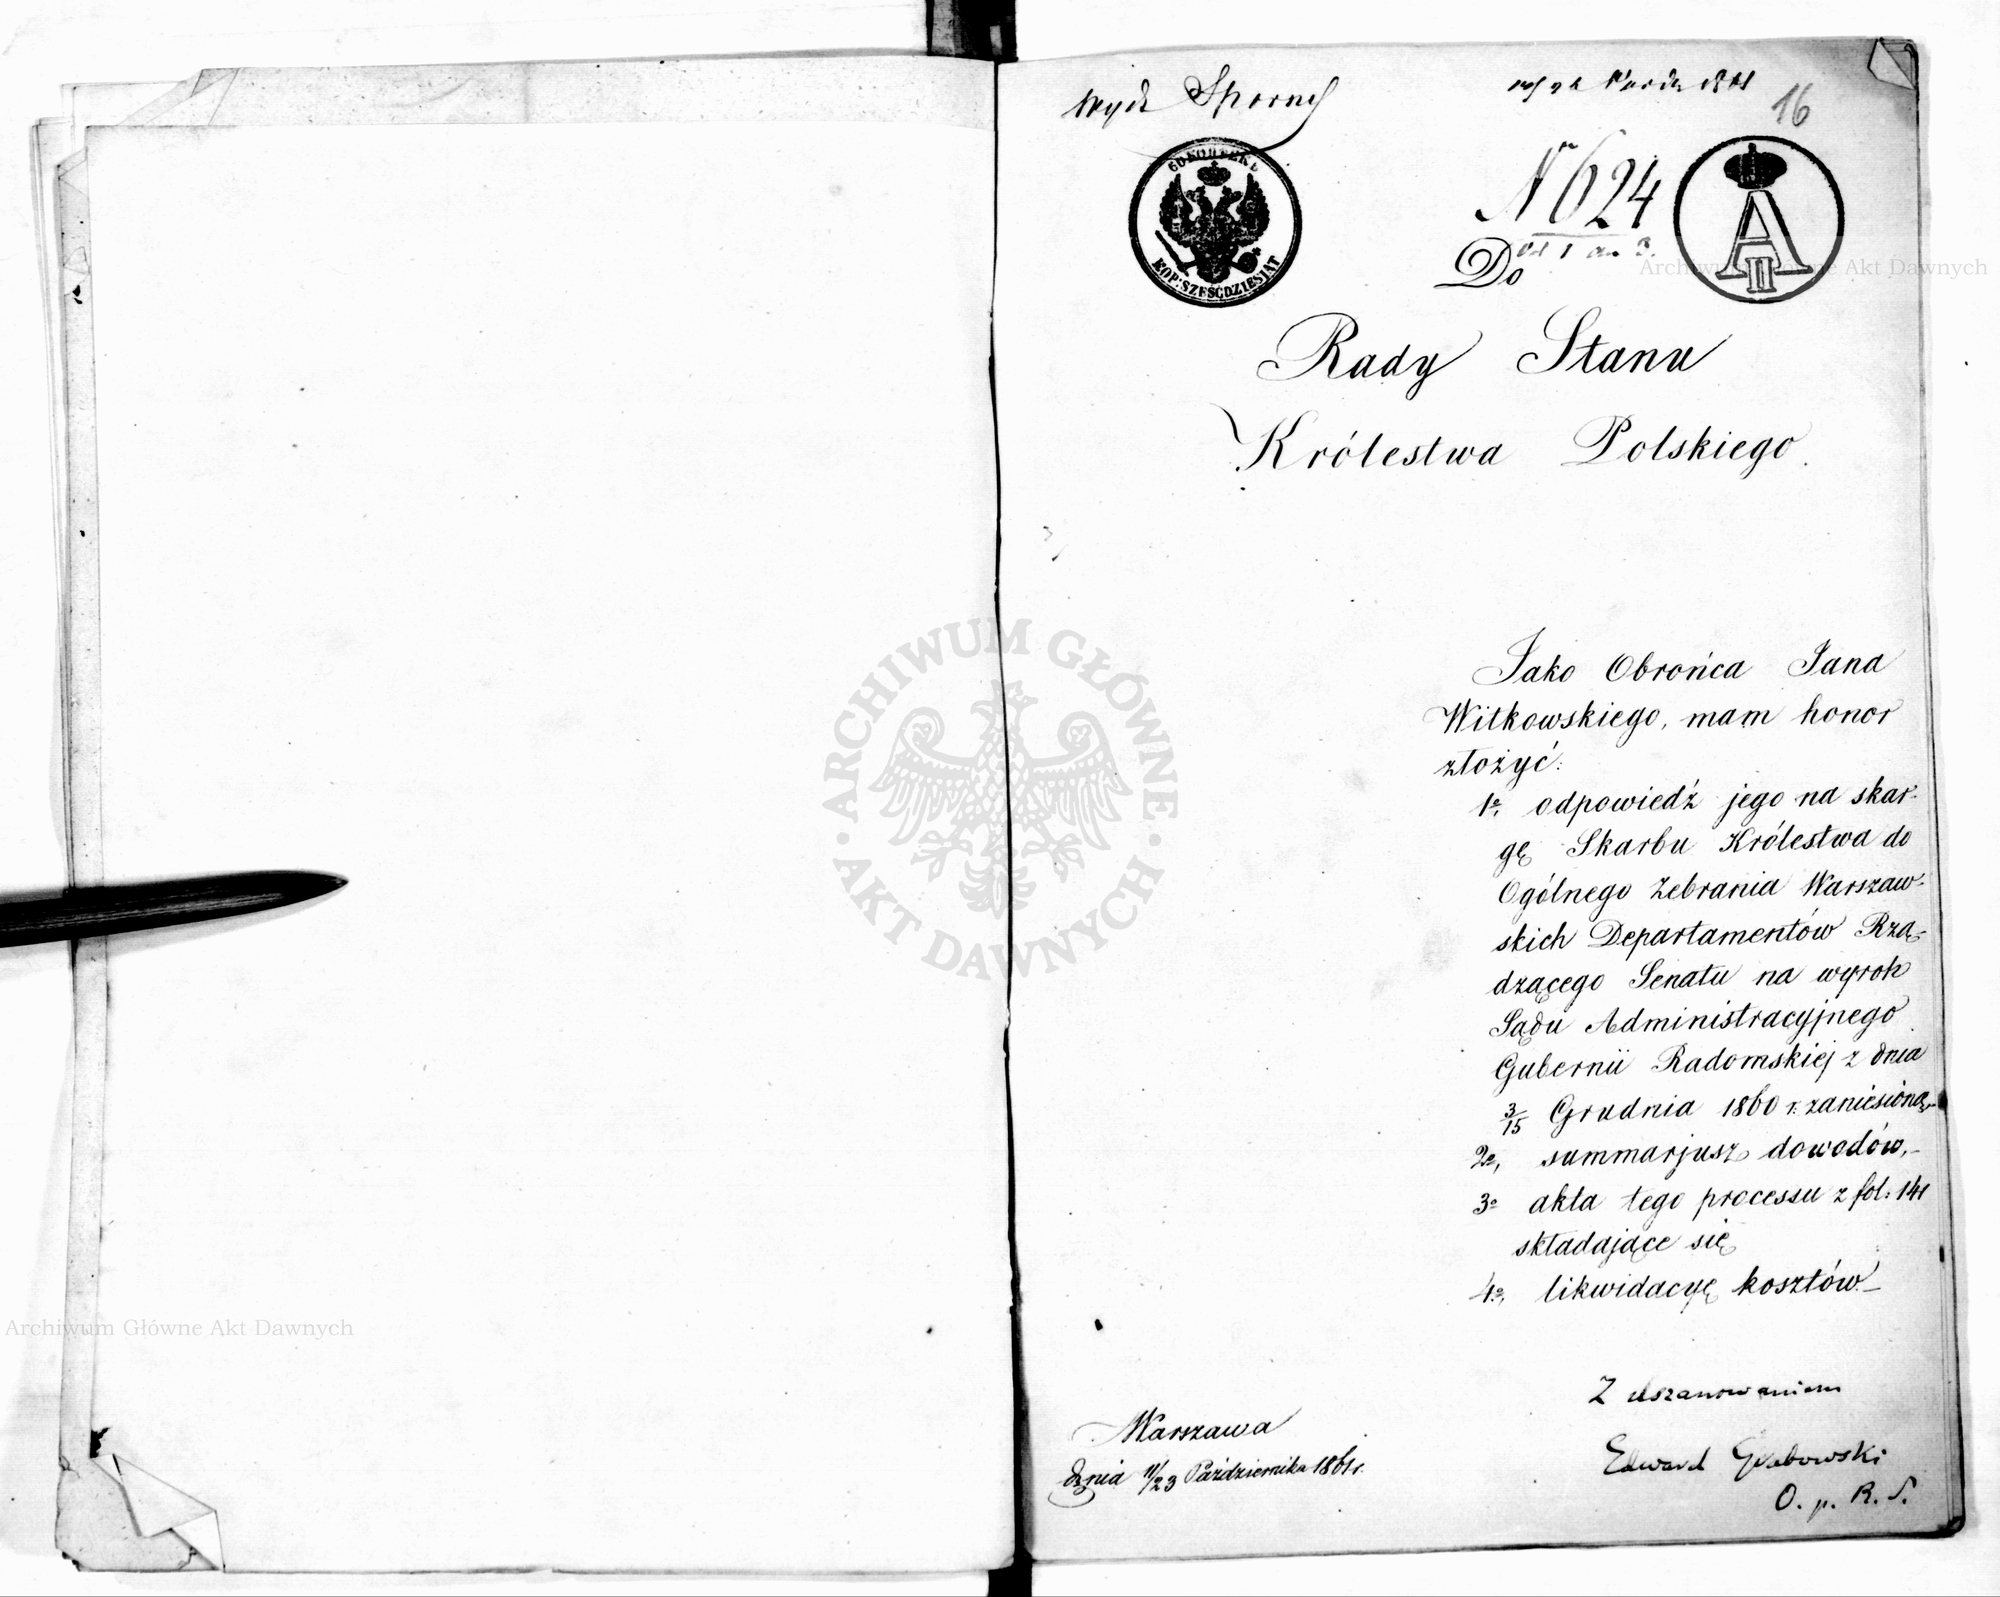 Wydz Sporny
16
60 KOPIEEK
KOP: SZEŚĆDZIESIĄT
N 624
A II
Do
Rady Stanu
Królestwa Polskiego.
Jako Obrońca Jana
Witkowskiego, mam honor
złożyć:
1o, odpowiedź jego na skar-
gę Skarbu Królestwa do
Ogólnego Zebrania Warszaw-
skich Departamentów Rzą-
dzącego Senatu na wyrok
Sądu Administracyjnego
Gubernii Radomskiej z dnia
3/15 Grudnia 1860 r. zaniesioną,
2o, summarjusz dowodów,-
3o akta tego processu z fol: 141
składające się
4o, likwidacyę kosztów.-
Z uszanowaniem
Edward Grabowski
O. p. R. S.
Warszawa
dnia 11/23 Października 1861 r.
ARCHIWUM GŁÓWNE · AKT DAWNYCH ·
Archiwum Główne Akt Dawnych
Archiwum Główne Akt Dawnych